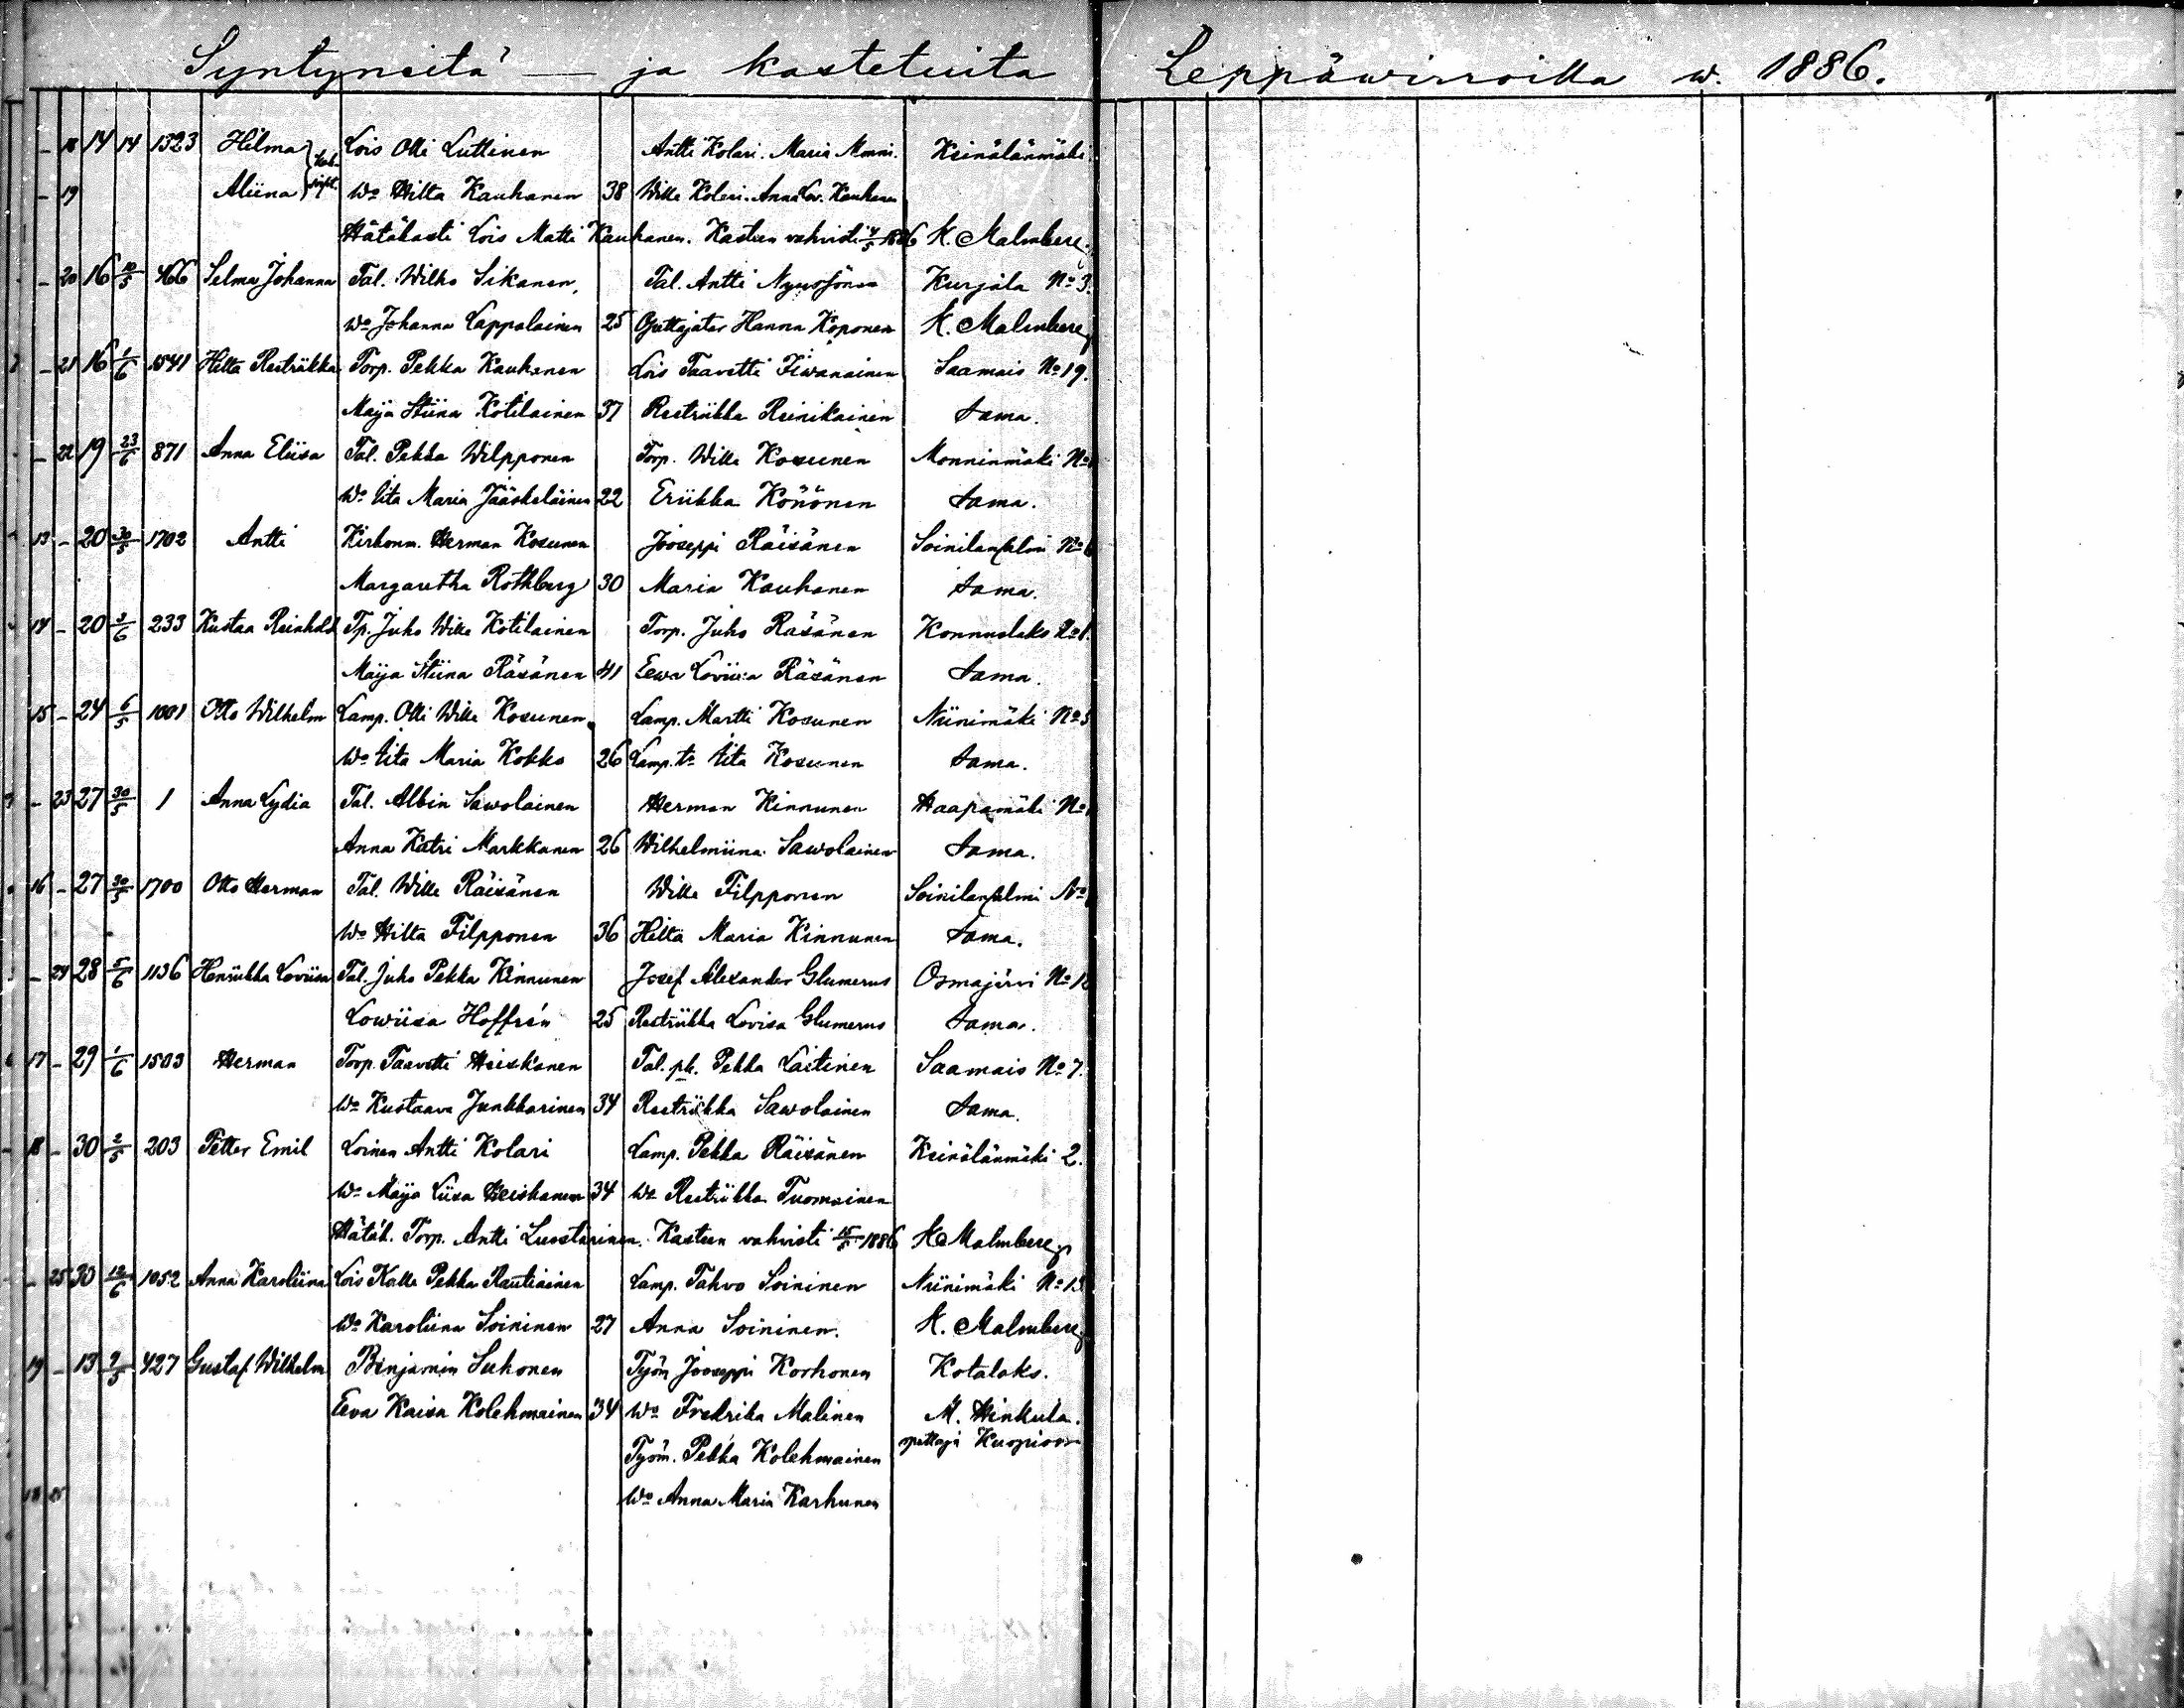 Syntyneitä — ja kastetuita Leppäwirroilla w. 1886.
- 18 14 14 1323 Hilma Lois Olli Luttinen Antti Kolari. Maria Monni. Keinälänmäki
- 19 Aliina Wo Hilta Kauhanen 38 Wille Kolari. Anna Lov. Kauhanen
Hätäkasti Lois Matti Kauhanen. Kasteen vahvisti 1886 K. Malmberg.
- 20 16 10/5 466 Selma Johanna Tal. Wilho Sikanen, Tal. Antti Nyyssönen Kurjala No 3.
Wo Johanna Lappalainen 25 Opettajatar Hanna Koponen K. Malmberg
- 21 16 1/6 1541 Hilta Reetriikka Torp. Pekka Kauhanen Lois Taavetti Tiwanainen Saamais No 19.
Maija Stiina Kotilainen 37 Reetriikka Reinikainen Sama.
- 22 19 23/6 871 Anna Eliisa Tal. Pekka Wilpponen Torp. Wille Kosunen Monninmäki No
Wo Uita Maria Jääskeläinen 22 Eriikka Könönen Sama.
13 - 20 30/5 1702 Antti Kirkonm. Herman Kosunen Jooseppi Räisänen Soinilansalmi No 6
Margaretha Rothberg 30 Maria Kauhanen Sama.
14 - 20 3/6 233 Kustaa Reinhold Tp. Juho Wille Kotilainen Torp. Juho Räsänen Konnuslaks No 1.
Maija Stiina Räsänen 41 Eewa Loviisa Räsänen Sama.
15 - 24 6/5 1001 Otto Wilhelm Lamp. Olli Wille Kosunen Lamp. Martti Kosunen Niinimäki No 5
Wo Uita Maria Kokko 26 Lamp. tr Uita Kosunen Sama.
- 23 27 30/5 1 Anna Lydia Tal. Albin Sawolainen Herman Kinnunen Haapamäki No
Anna Katri Markkanen 26 Wilhelmiina Sawolainen Sama.
16 - 27 30/5 1700 Otto Herman Tal. Wille Räisänen Wille Filpponen Soinilansalmi No
Wo Hilta Filpponen 36 Hilta Maria Kinnunen Sama.
- 24 28 5/6 1136 Henriikka Loviisa Tal. Juho Pekka Kinnunen Josef Alexander Glumerus Osmajärvi No 10
Lowiisa Hoffrén 25 Reetriikka Lovisa Glumerus Sama.
17 - 29 1/6 1503 Herman Torp. Taavetti Heiskanen Tal. pk. Pekka Laitinen Saamais No 7.
Wo Kustaava Junkkarinen 34 Reetriikka Sawolainen Sama.
18 - 30 2/5 203 Petter Emil Loinen Antti Kolari Lamp. Pekka Räisänen Keinälänmäki 2.
Wo Maija Liisa Heiskanen 34 Wo Reetriikka Tuomainen
Hätäk. Torp. Antti Luostarinen. Kasteen vahvisti 1886 K. Malmberg
- 25 30 12/6 1052 Anna Karoliina Lois Kalle Pekka Rautiainen Lamp. Tahvo Soininen Niinimäki No 13
Wo Karoliina Soininen 27 Anna Soininen. K. Malmberg
19 - 13 2/5 427 Gustaf Wilhelm Benjamin Suhonen Työm. Jooseppi Korhonen Kotalaks.
Eeva Kaisa Kolehmainen 34 Wo Fredrika Malinen M. Hinkula.
Työm. Pekka Kolehmainen opettaja Kuopiossa
18 25 Wo Anna Maria Karhunen